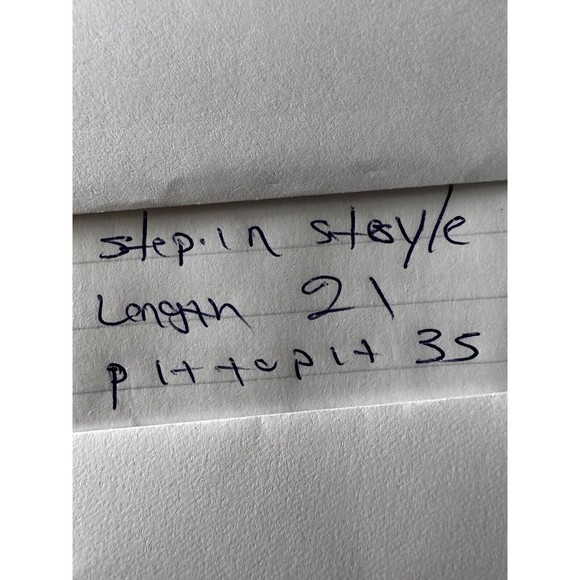 step.in steyle
Length 21
pit to pit 35